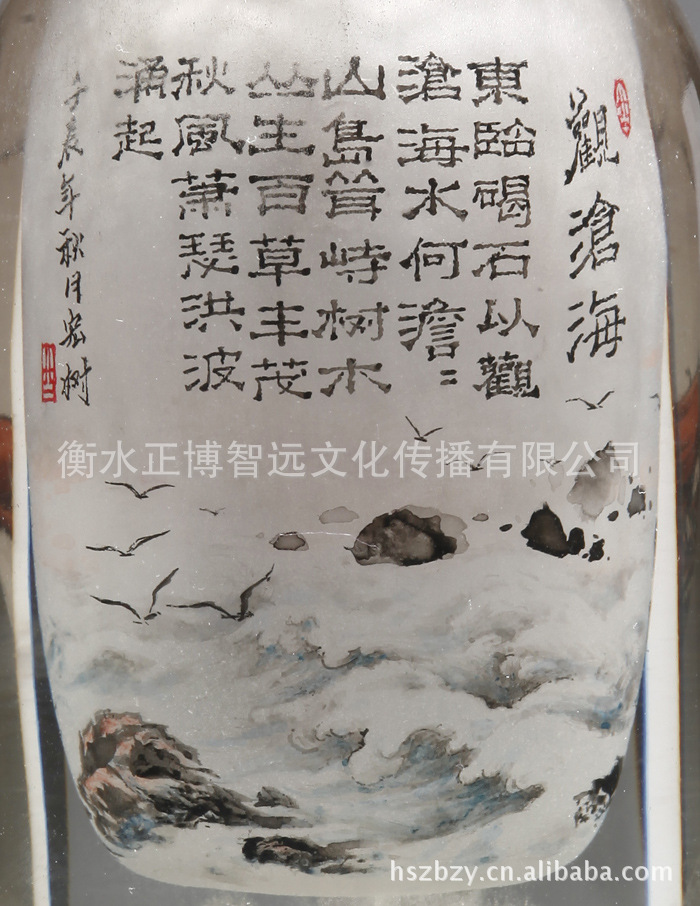 觀滄海
東臨碣石以觀
滄海水何澹〻
山島耸峙树木
丛生百草丰茂
秋風萧瑟洪波
涌起
辰年秋月宏树
衡水正博智远文化传播有限公司
hszbzy.cn.alibaba.com